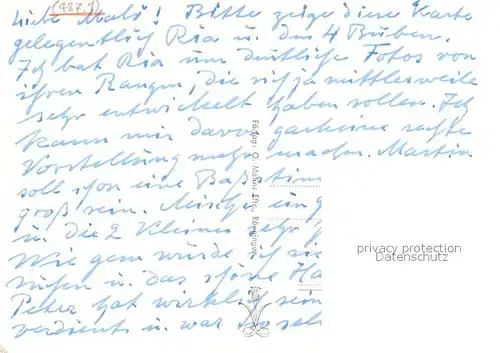 (487.1)
Liebe Mali! Bitte zeige diese Karte
gelegentlich Ria u. den 4 Buben.
Ich bat Ria um deutliche Fotos von
ihren Rangen, die sich ja mittlerweile
sehr entwickelt haben sollen. Ich
kann mir davon gar keine rechte
Vorstellung mehr machen. Martin
soll schon eine Baßstim
groß sein. ein
u. die 2 Kleinen sehr
Wie gern würde ich
u. das schöne Ha
Peter hat wirklich sein
verdient u. war so seh
privacy protection
Datenschutz